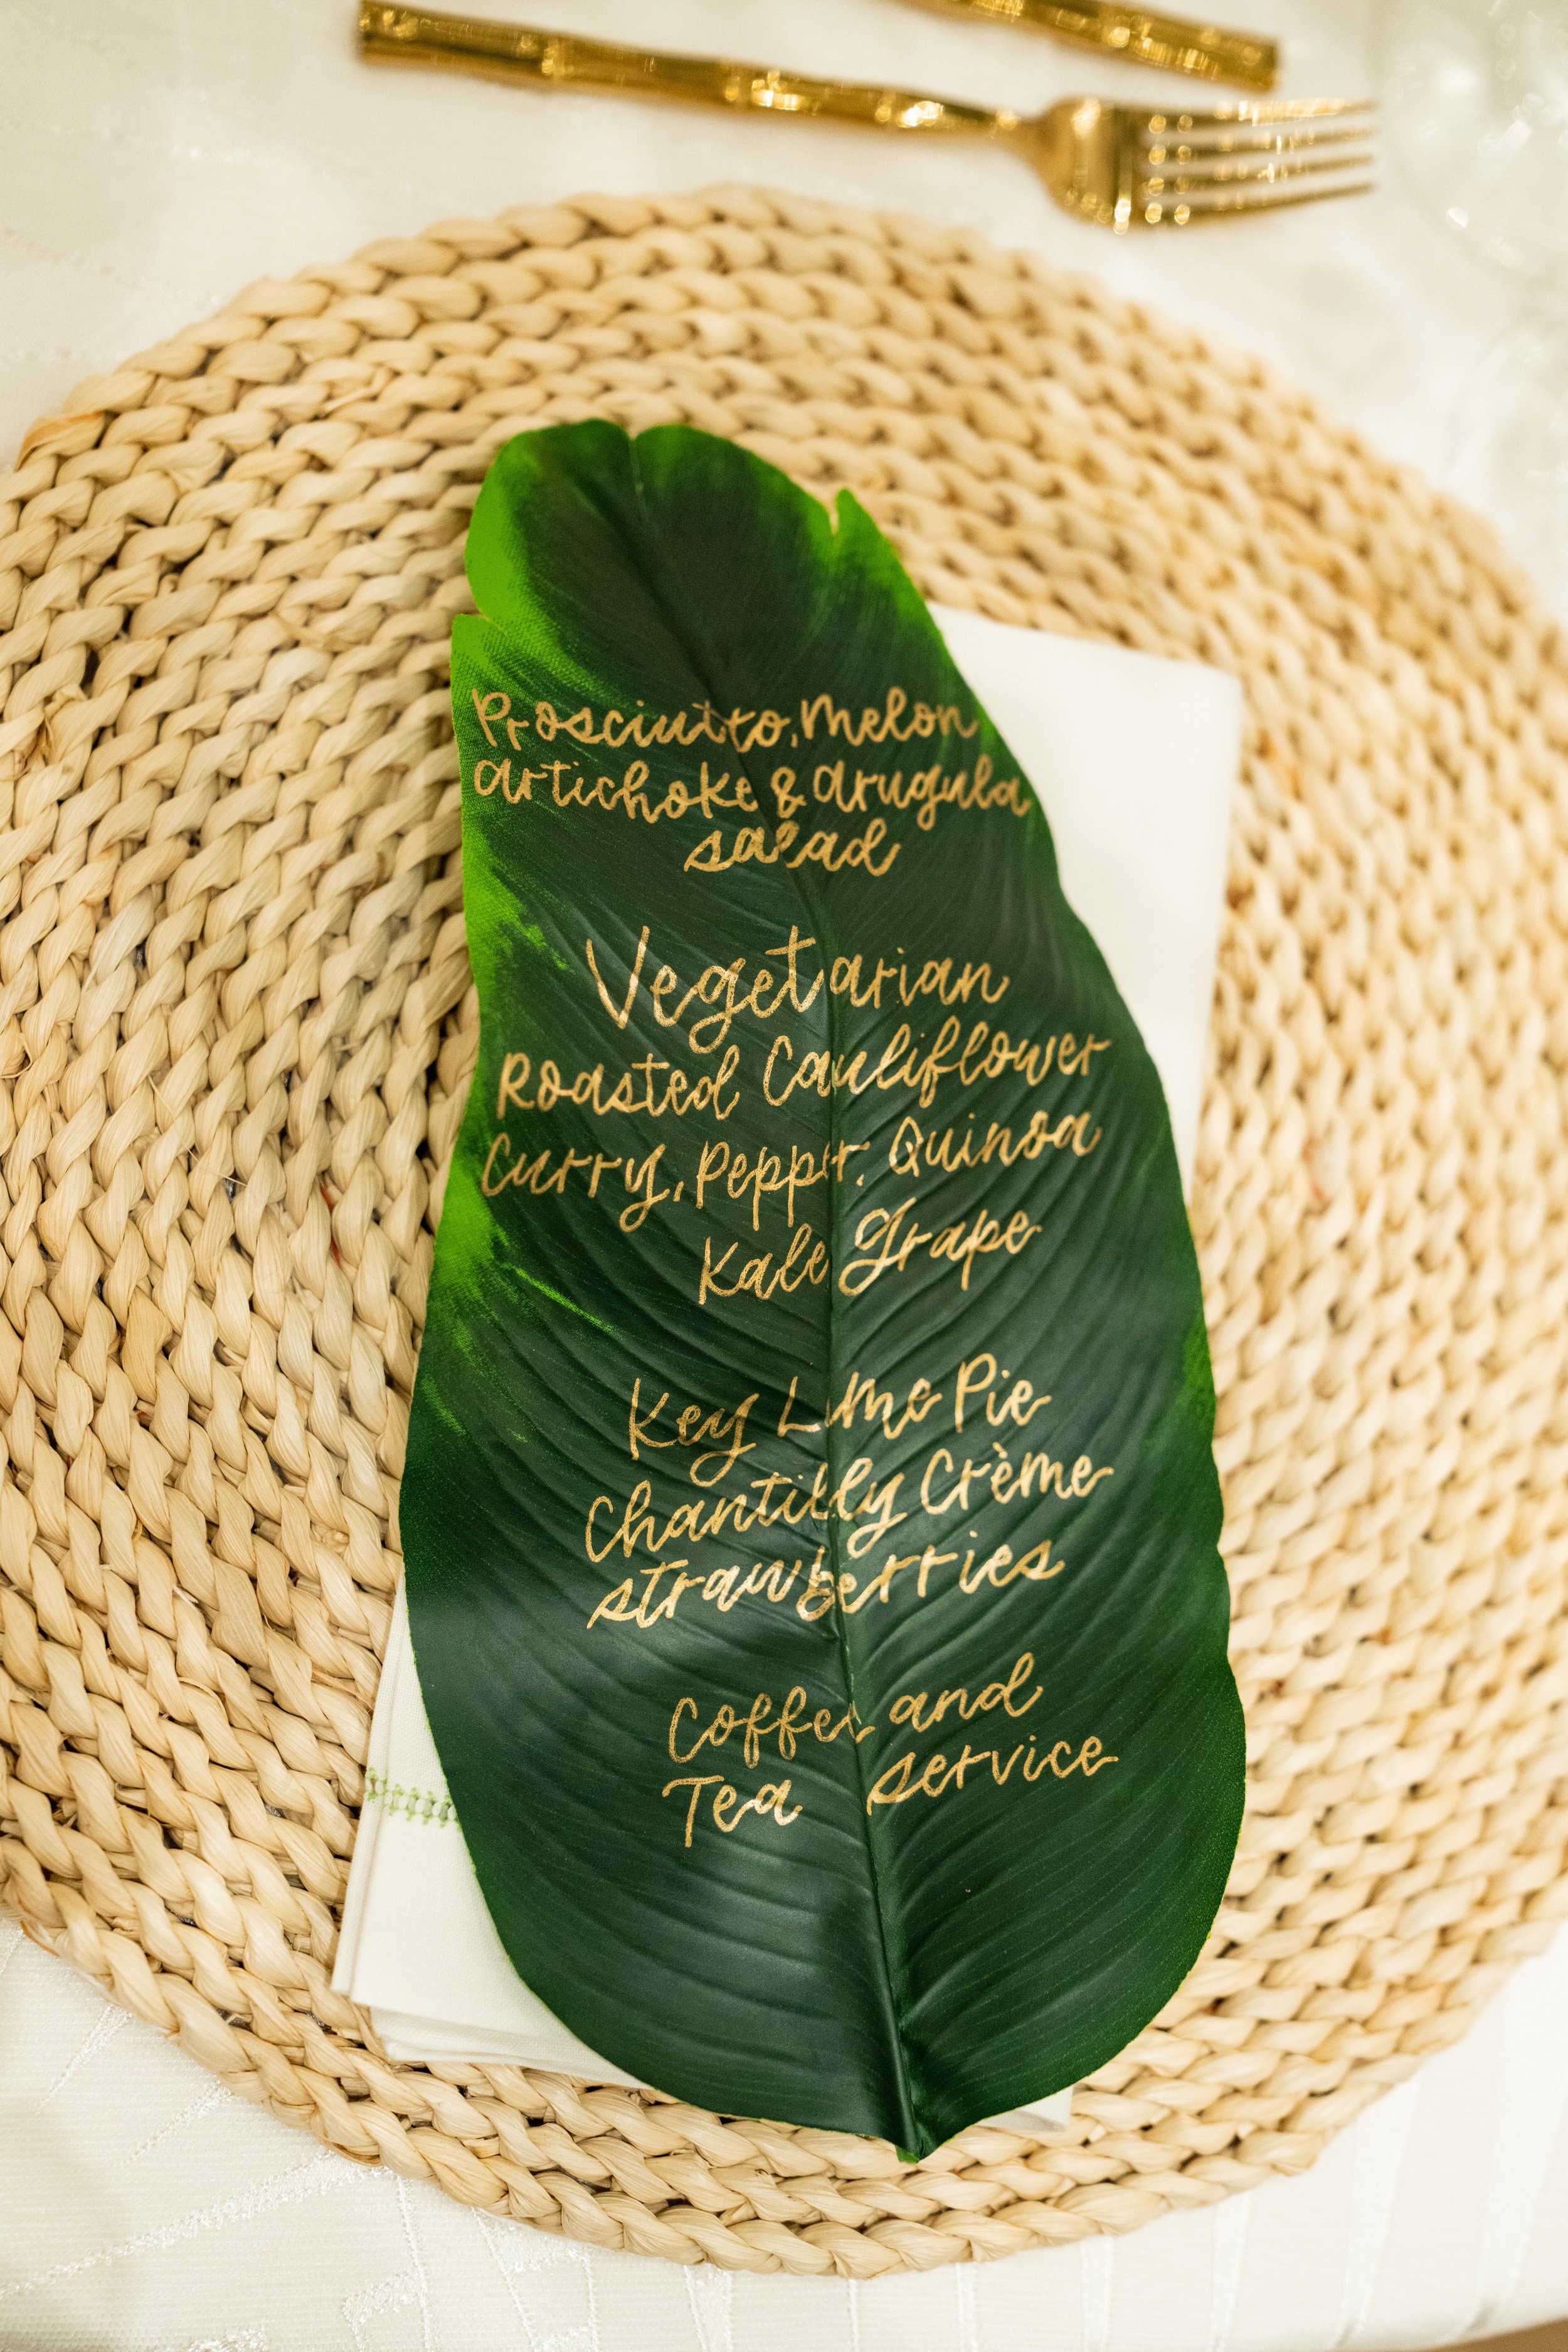 Prosciutto, Melon
artichoke & arugula
salad
Vegetarian
Roasted Cauliflower
Curry, Pepper, Quinoa
Kale Grape
Key Lime Pie
Chantilly Crème
strawberries
Coffee and
Tea service